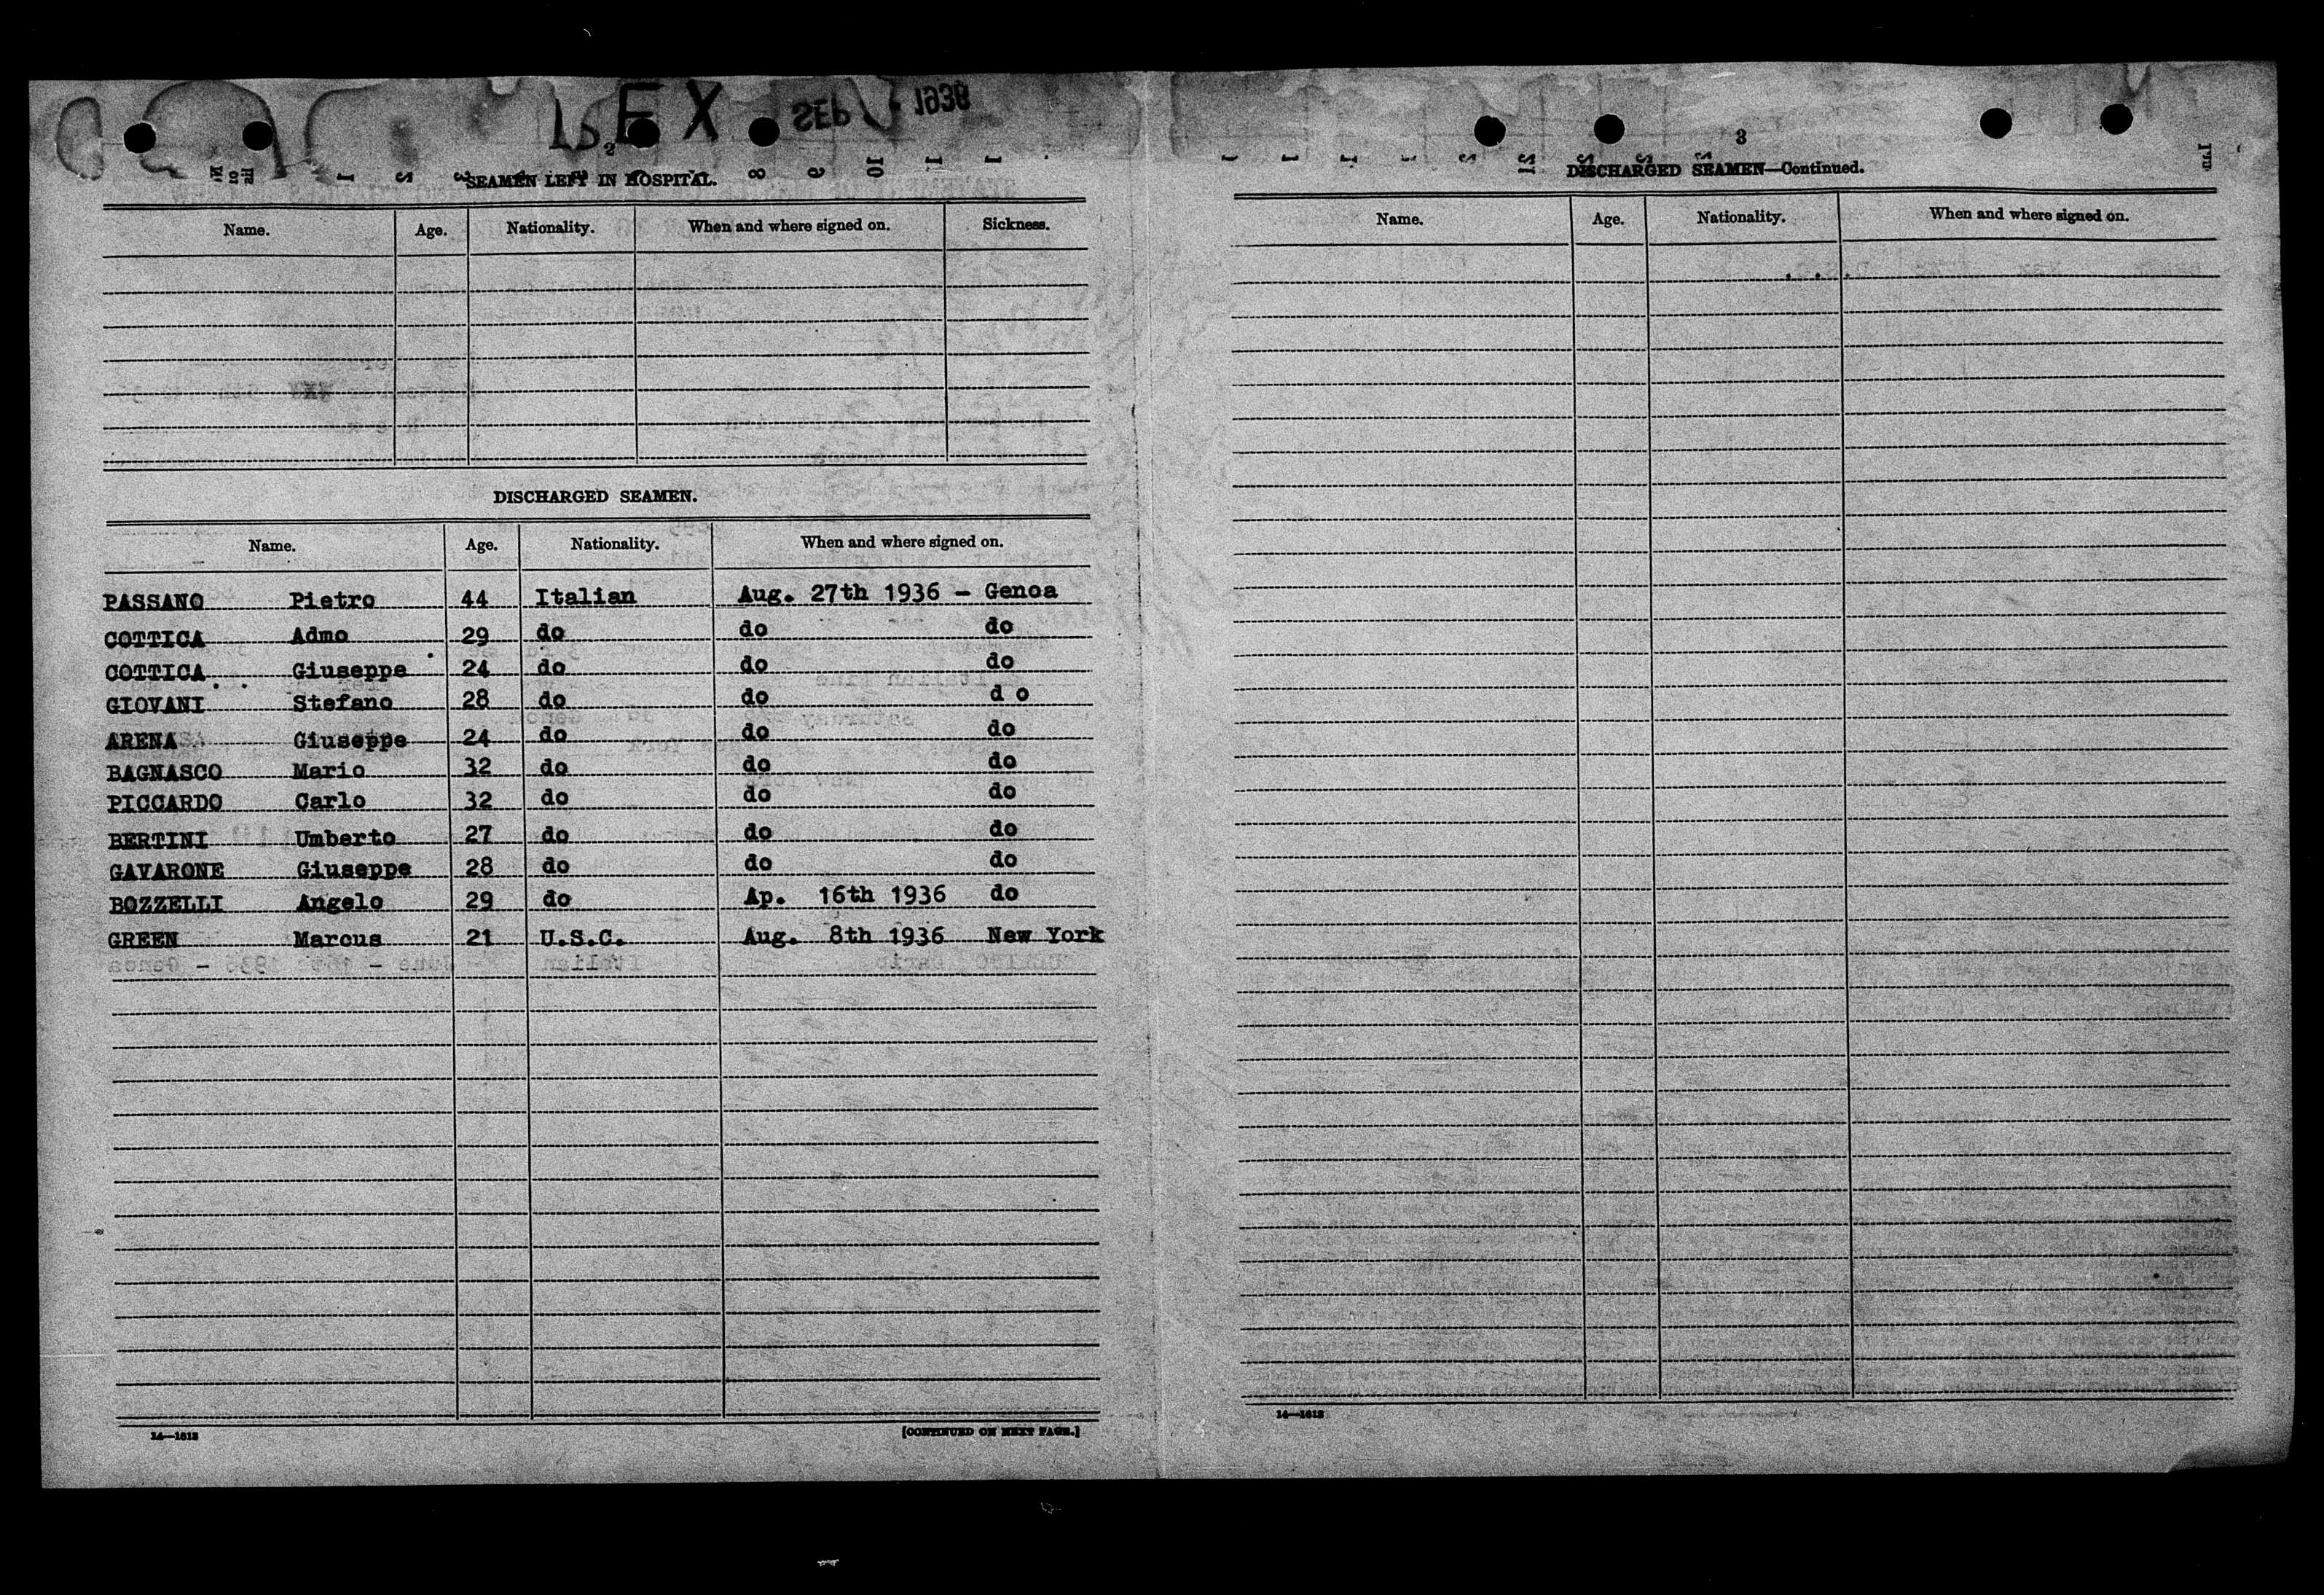 EX
SEP 1936
2
SEAMEN LEFT IN HOSPITAL.
Name. Age. Nationality. When and where signed on. Sickness.
DISCHARGED SEAMEN.
Name. Age. Nationality. When and where signed on.
PASSANO Pietro 44 Italian Aug. 27th 1936 - Genoa
COTTICA Admo 29 do do do
COTTICA Giuseppe 24 do do do
GIOVANI Stefano 28 do do d o
ARENA Giuseppe 24 do do do
BAGNASCO Mario 32 do do do
PICCARDO Carlo 32 do do do
BERTINI Umberto 27 do do do
GAVARONE Giuseppe 28 do do do
BOZZELLI Angelo 29 do Ap. 16th 1936 do
GREEN Marcus 21 U.S.C. Aug. 8th 1936 New York
14—1613
[CONTINUED ON NEXT PAGE.]
3
DISCHARGED SEAMEN—Continued.
Name. Age. Nationality. When and where signed on.
14—1613